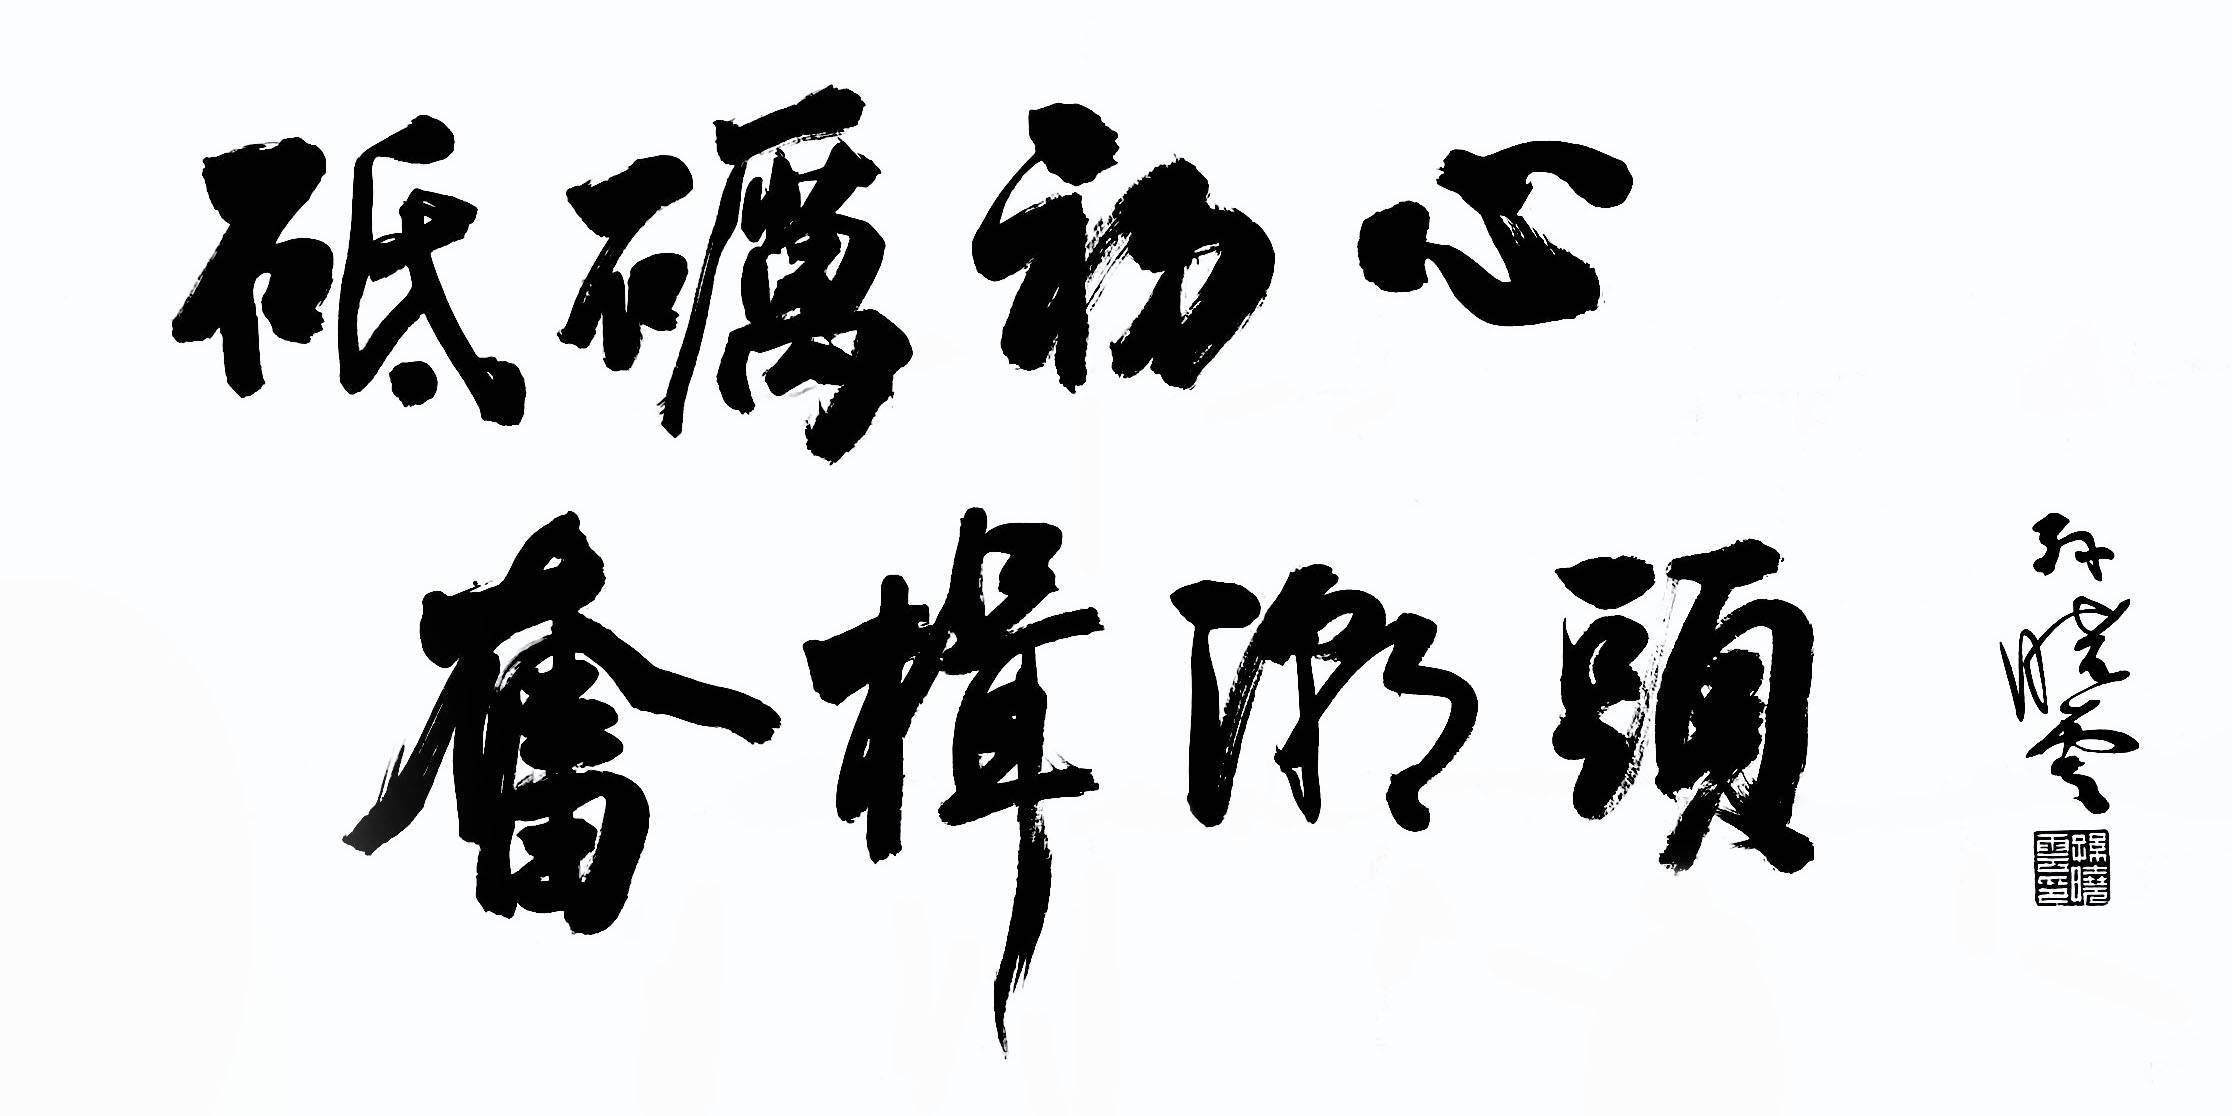 砥礪初心
奮楫潮頭
孫曉雲
孫曉雲印